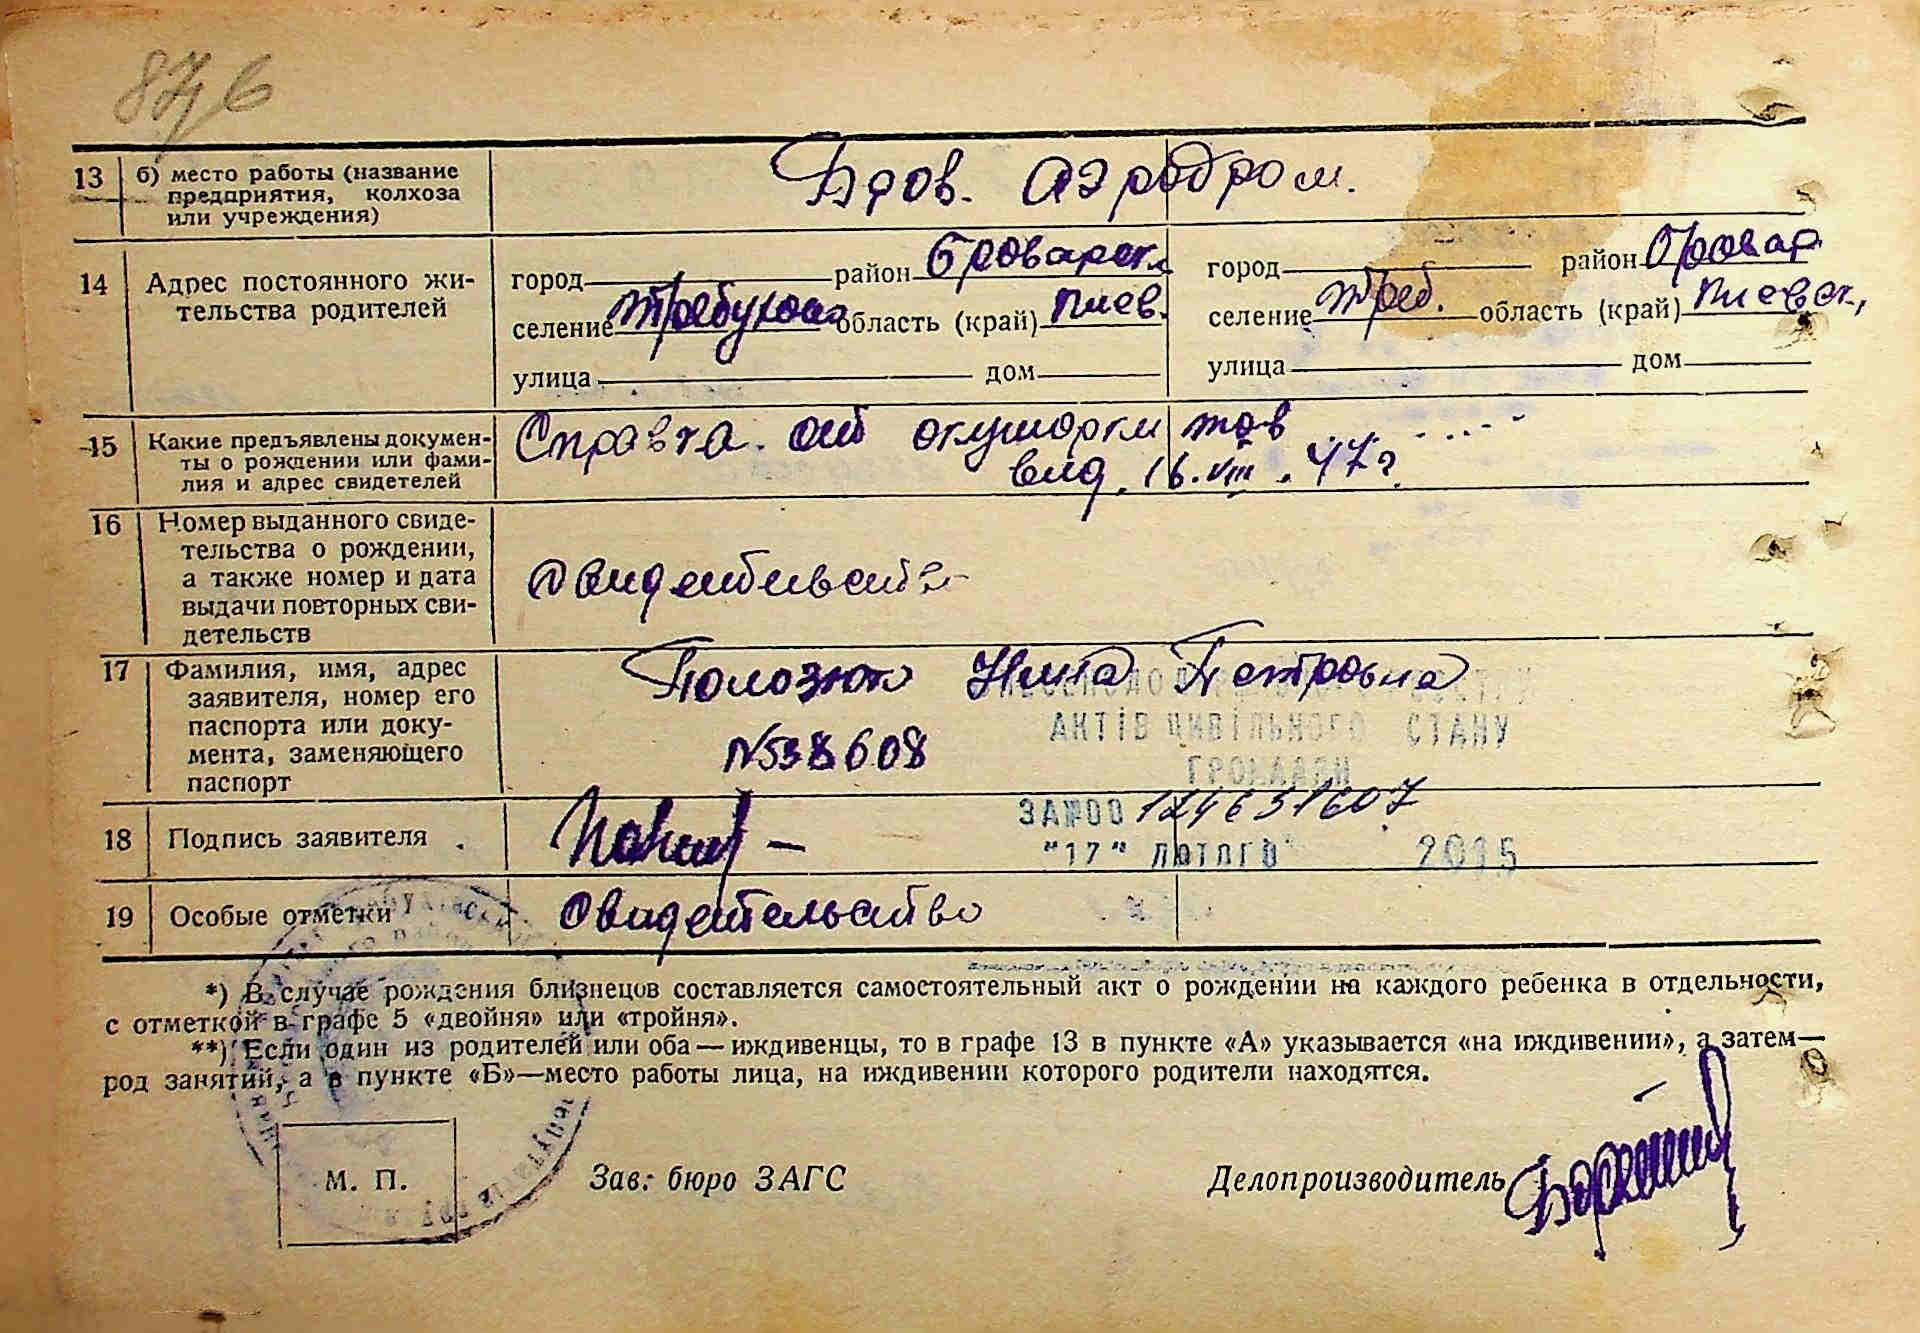 13 б) место работы (название предприятия, колхоза или учреждения) Бров. аэродром.
14 Адрес постоянного жительства родителей
город район Броварск. город район Бровар
селение область (край) Киев. селение Треб. область (край) Киевск,
улица дом улица дом
15 Какие предъявлены документы о рождении или фамилия и адрес свидетелей Справка от акушорки тов
вид. 16.VIII.47г.
16 Номер выданного свидетельства о рождении, а также номер и дата выдачи повторных свидетельств
17 Фамилия, имя, адрес заявителя, номер его паспорта или документа, заменяющего паспорт Нина Петровна
№538608
АКТІВ ЦИВІЛЬНОГО СТАНУ
ГРОМАДЯН
18 Подпись заявителя
"17" ЛЮТОГО 2015
19 Особые отметки Свидетельство
*) В случае рождения близнецов составляется самостоятельный акт о рождении на каждого ребенка в отдельности,
с отметкой в графе 5 «двойня» или «тройня».
**) Если один из родителей или оба — иждивенцы, то в графе 13 в пункте «А» указывается «на иждивении», а затем—
род занятий, а в пункте «Б»—место работы лица, на иждивении которого родители находятся.
М. П. Зав. бюро ЗАГС Делопроизводитель